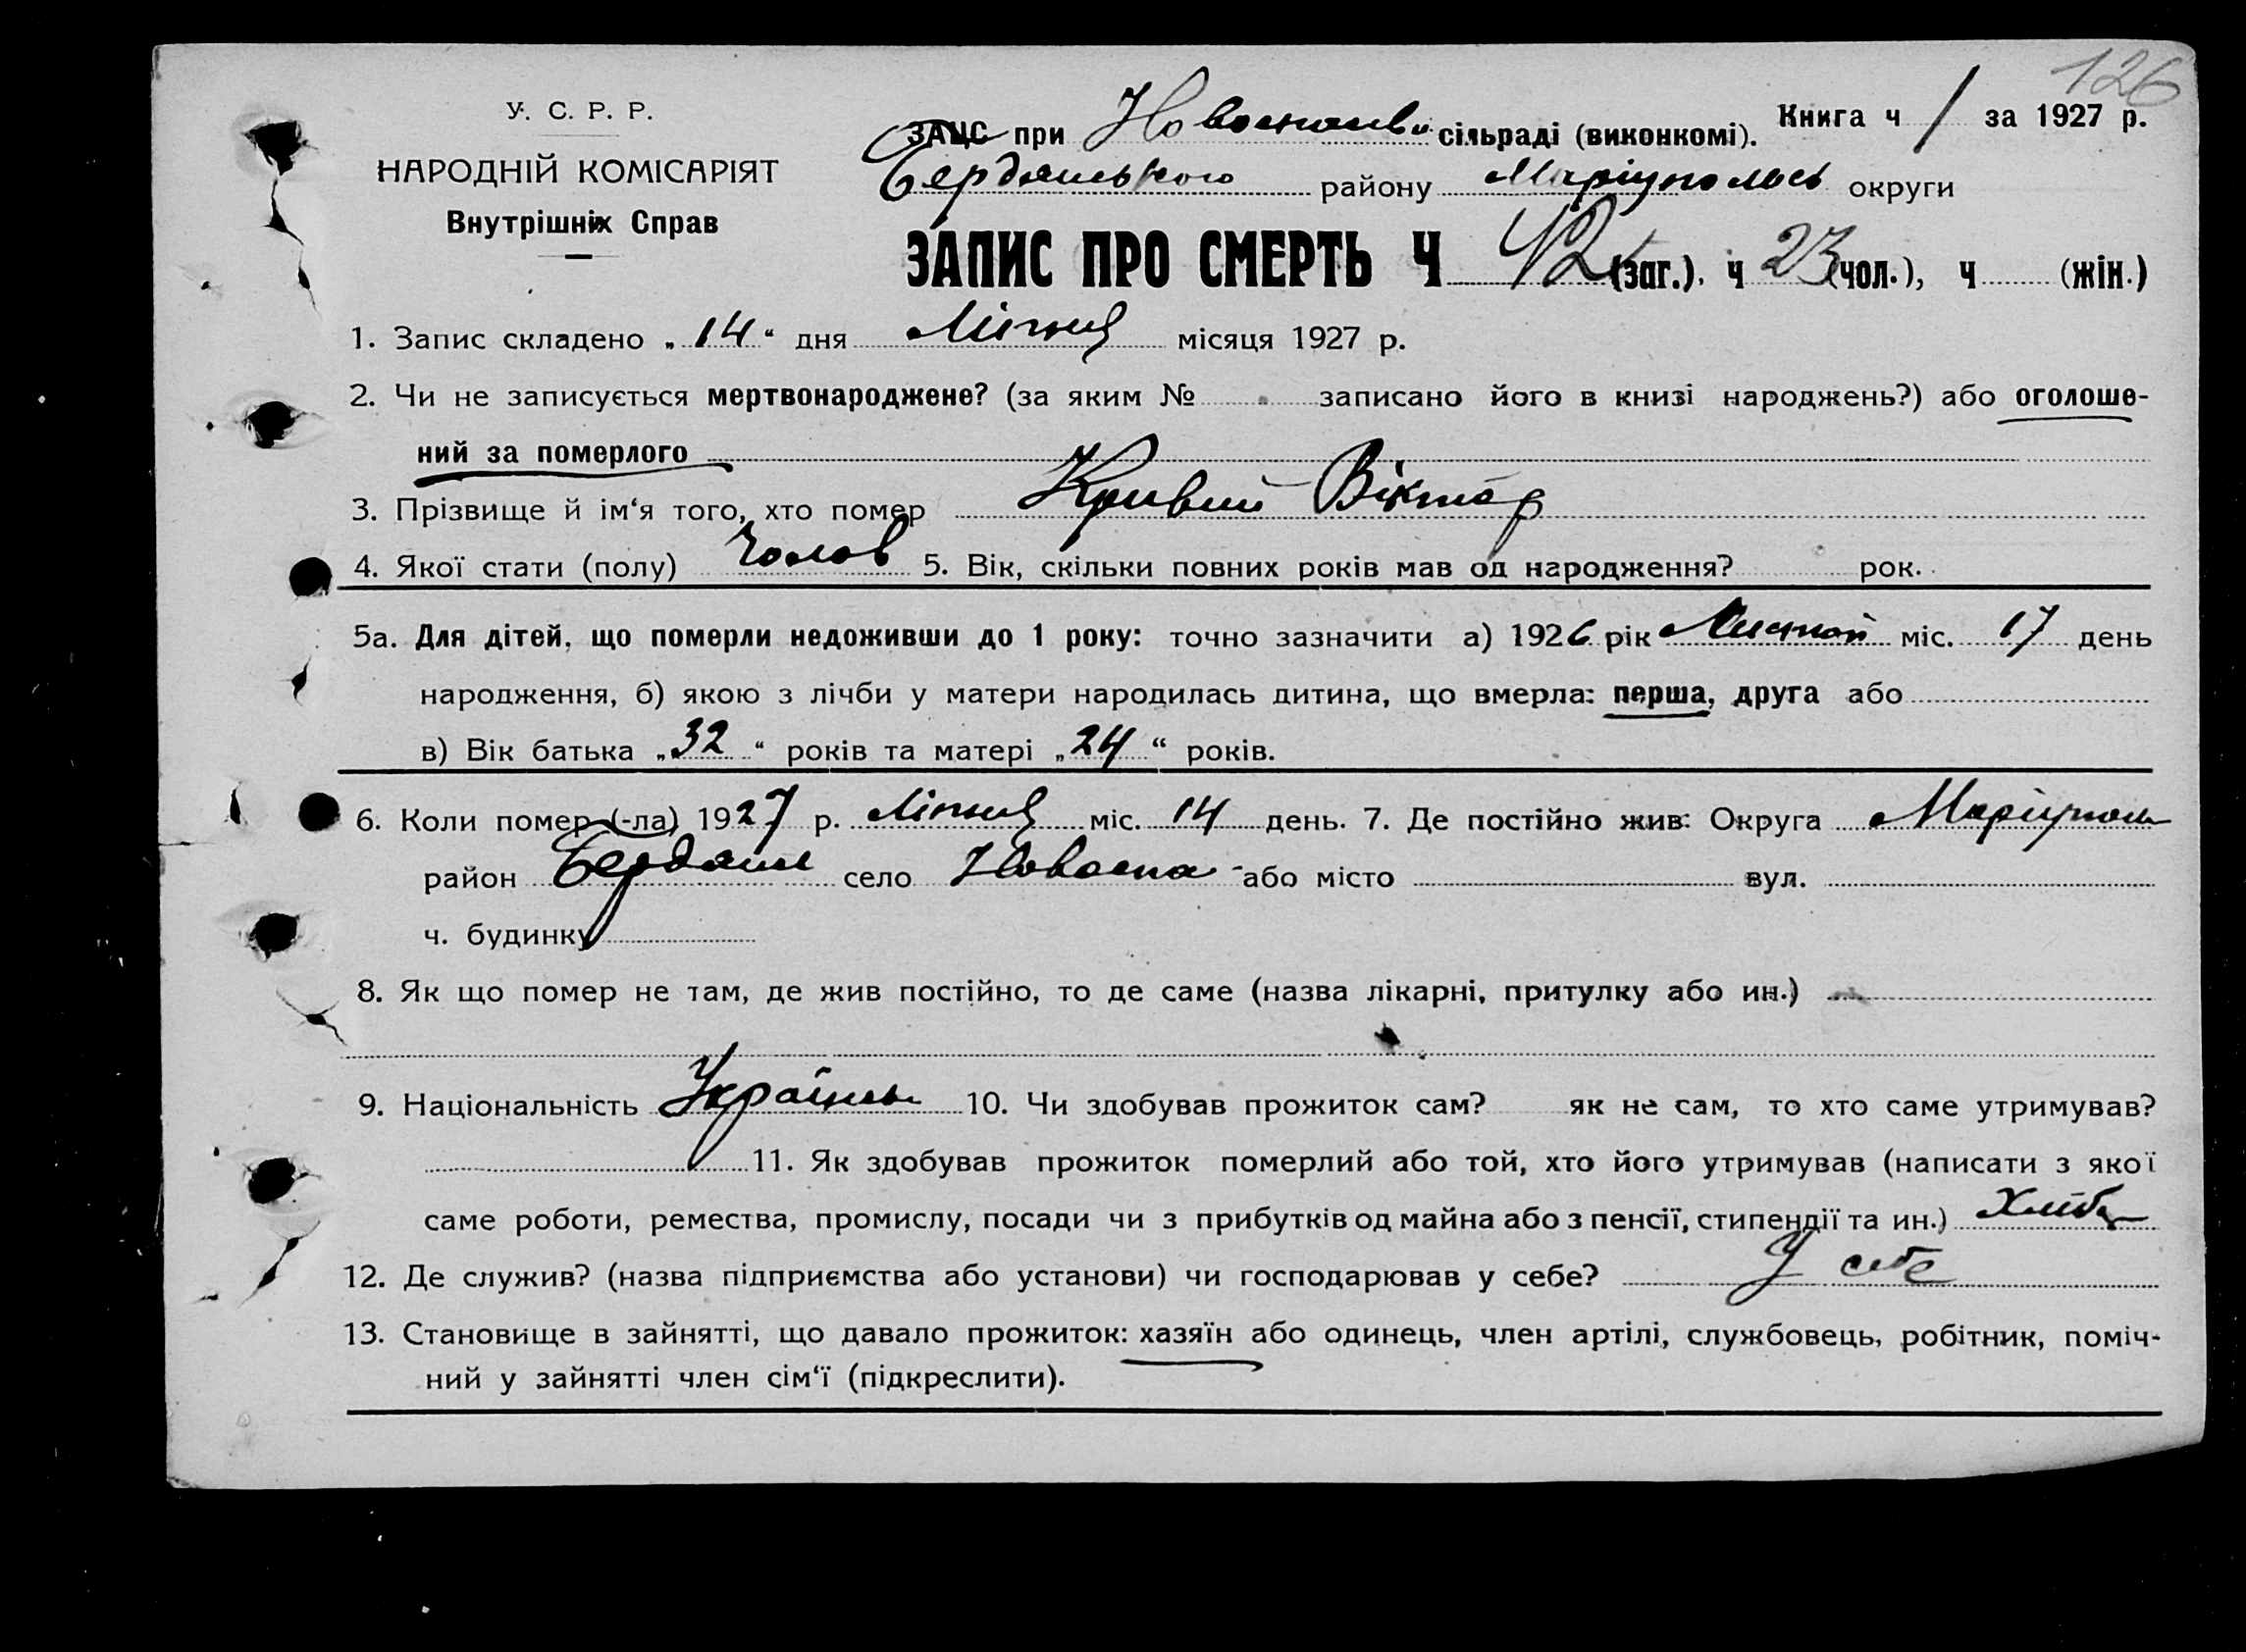 126
У. С. Р. Р.
НАРОДНІЙ КОМІСАРІЯТ
Внутрішніх Справ
ЗАЦС при сільраді (виконкомі). Книга ч 1 за 1927 р.
Бердянського району Маріупольс округи
ЗАПИС ПРО СМЕРТЬ Ч 42 (заг.). ч 23 (чол.), ч (жін.)
1. Запис складено „14“ дня Літня місяця 1927 р.
2. Чи не записується мертвонароджене? (за яким № записано його в книзі народжень?) або оголоше-
ний за померлого
3. Прізвище й ім‘я того, хто помер Кривий Віктор
4. Якої стати (полу) Чолов 5. Вік, скільки повних років мав од народження? рок.
5а. Для дітей, що померли недоживши до 1 року: точно зазначити а) 1926 рік Листоп міс. 17 день
народження, б) якою з лічби у матери народилась дитина, що вмерла: перша, друга або
в) Вік батька „32“ років та матері „24“ років.
6. Коли помер (-ла) 1927 р. Літня міс. 14 день. 7. Де постійно жив: Округа Маріуполь
район Бердянс село Новоспа або місто вул.
ч. будинку
8. Як що помер не там, де жив постійно, то де саме (назва лікарні, притулку або ин.)
9. Національність Українськ 10. Чи здобував прожиток сам? як не сам, то хто саме утримував?
11. Як здобував прожиток померлий або той, хто його утримував (написати з якої
саме роботи, ремества, промислу, посади чи з прибутків од майна або з пенсії, стипендії та ин.) Хліб
12. Де служив? (назва підприємства або установи) чи господарював у себе? У себе
13. Становище в зайнятті, що давало прожиток: хазяїн або одинець, член артілі, службовець, робітник, поміч-
ний у зайнятті член сім‘ї (підкреслити).